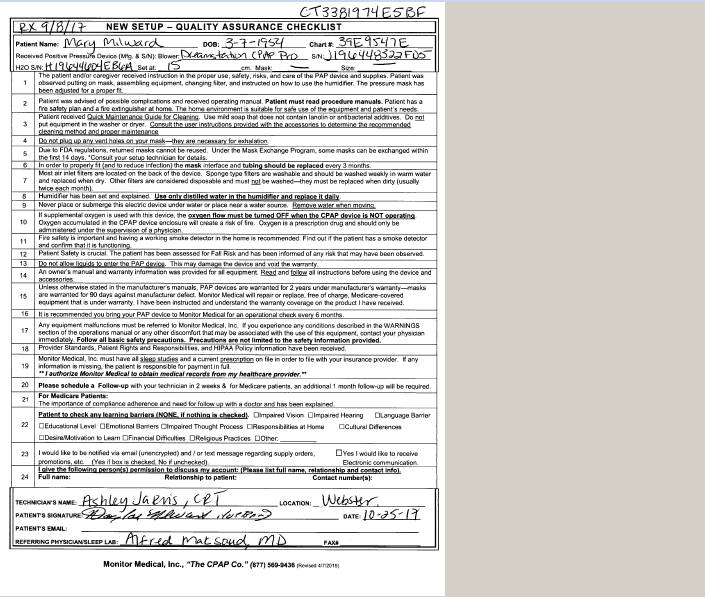 CT3381974E5BF
RX 9/8/17 NEW SETUP – QUALITY ASSURANCE CHECKLIST
Patient Name: Mary Milward DOB: 3-7-1954 Chart #: 39E9547E
Received Positive Pressure Device (Mfg. & S/N): Blower: Dreamstation CPAP Pro S/N: J196448322FD5
H2O S/N: H19644604EB6A Set at: 15 cm. Mask: Size:
1 The patient and/or caregiver received instruction in the proper use, safety, risks, and care of the PAP device and supplies. Patient was
observed putting on mask, assembling equipment, changing filter, and instructed on how to use the humidifier. The pressure mask has
been adjusted for a proper fit.
2 Patient was advised of possible complications and received operating manual. Patient must read procedure manuals. Patient has a
fire safety plan and a fire extinguisher at home. The home environment is suitable for safe use of the equipment and patient's needs.
3 Patient received Quick Maintenance Guide for Cleaning. Use mild soap that does not contain lanolin or antibacterial additives. Do not
put equipment in the washer or dryer. Consult the user instructions provided with the accessories to determine the recommended
cleaning method and proper maintenance
4 Do not plug up any vent holes on your mask—they are necessary for exhalation.
5 Due to FDA regulations, returned masks cannot be reused. Under the Mask Exchange Program, some masks can be exchanged within
the first 14 days. *Consult your setup technician for details.
6 In order to properly fit (and to reduce infection) the mask interface and tubing should be replaced every 3 months.
7 Most air inlet filters are located on the back of the device. Sponge type filters are washable and should be washed weekly in warm water
and replaced when dry. Other filters are considered disposable and must not be washed—they must be replaced when dirty (usually
twice each month).
8 Humidifier has been set and explained. Use only distilled water in the humidifier and replace it daily.
9 Never place or submerge this electric device under water or place near a water source. Remove water when moving.
10 If supplemental oxygen is used with this device, the oxygen flow must be turned OFF when the CPAP device is NOT operating.
Oxygen accumulated in the CPAP device enclosure will create a risk of fire. Oxygen is a prescription drug and should only be
administered under the supervision of a physician.
11 Fire safety is important and having a working smoke detector in the home is recommended. Find out if the patient has a smoke detector
and confirm that it is functioning.
12 Patient Safety is crucial. The patient has been assessed for Fall Risk and has been informed of any risk that may have been observed.
13 Do not allow liquids to enter the PAP device. This may damage the device and void the warranty.
14 An owner's manual and warranty information was provided for all equipment. Read and follow all instructions before using the device and
accessories.
15 Unless otherwise stated in the manufacturer's manuals, PAP devices are warranted for 2 years under manufacturer's warranty—masks
are warranted for 90 days against manufacturer defect. Monitor Medical will repair or replace, free of charge, Medicare-covered
equipment that is under warranty. I have been instructed and understand the warranty coverage on the product I have received.
16 It is recommended you bring your PAP device to Monitor Medical for an operational check every 6 months.
17 Any equipment malfunctions must be referred to Monitor Medical, Inc. If you experience any conditions described in the WARNINGS
section of the operations manual or any other discomfort that may be associated with the use of this equipment, contact your physician
immediately. Follow all basic safety precautions. Precautions are not limited to the safety information provided.
18 Provider Standards, Patient Rights and Responsibilities, and HIPAA Policy information have been received.
19 Monitor Medical, Inc. must have all sleep studies and a current prescription on file in order to file with your insurance provider. If any
information is missing, the patient is responsible for payment in full.
** I authorize Monitor Medical to obtain medical records from my healthcare provider.**
20 Please schedule a Follow-up with your technician in 2 weeks & for Medicare patients, an additional 1 month follow-up will be required.
21 For Medicare Patients:
The importance of compliance adherence and need for follow up with a doctor and has been explained.
22 Patient to check any learning barriers (NONE, if nothing is checked). ☐Impaired Vision ☐Impaired Hearing ☐Language Barrier
☐Educational Level ☐Emotional Barriers ☐Impaired Thought Process ☐Responsibilities at Home ☐Cultural Differences
☐Desire/Motivation to Learn ☐Financial Difficulties ☐Religious Practices ☐Other:
23 I would like to be notified via email (unencrypted) and / or text message regarding supply orders, ☐Yes I would like to receive
promotions, etc. (Yes if box is checked, No if unchecked). Electronic communication.
24 I give the following person(s) permission to discuss my account: (Please list full name, relationship and contact info).
Full name: Relationship to patient: Contact number(s):
TECHNICIAN'S NAME: Ashley Jarvis, CRT LOCATION: Webster
PATIENT'S SIGNATURE: Douglas Milward Husband DATE: 10-25-17
PATIENT'S EMAIL:
REFERRING PHYSICIAN/SLEEP LAB: Alfred Maksoud, MD FAX#
Monitor Medical, Inc., "The CPAP Co." (877) 569-9436 (Revised 4/7/2015)